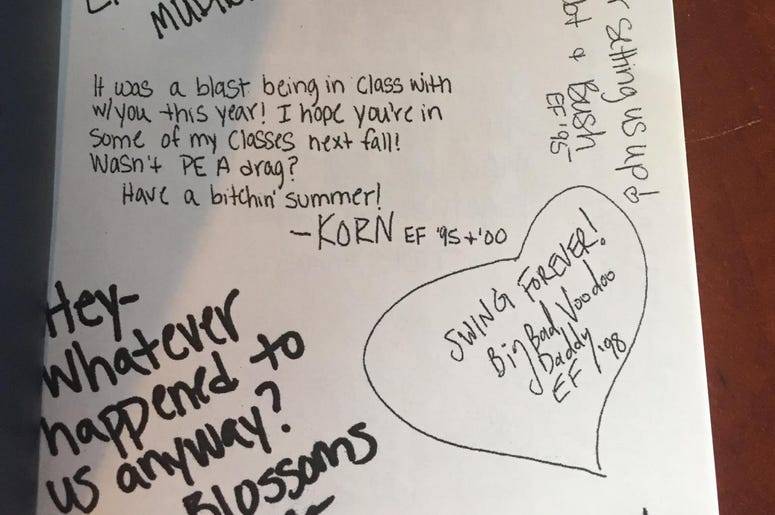 It was a blast being in class with
w/you this year! I hope you're in
some of my classes next fall!
Wasn't PE A drag?
Have a bitchin' summer!
-KORN EF '95+'00
setting us up!
& Bush
EF '95-
SWING FOREVER!
Big Bad Voodoo
Daddy
EF '98
Hey-
whatever
happened to
us anyway?
Blossoms